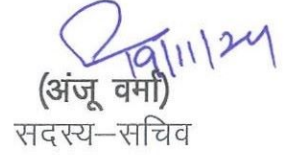 19/11/24
(अंजू वर्मा)
सदस्य–सचिव